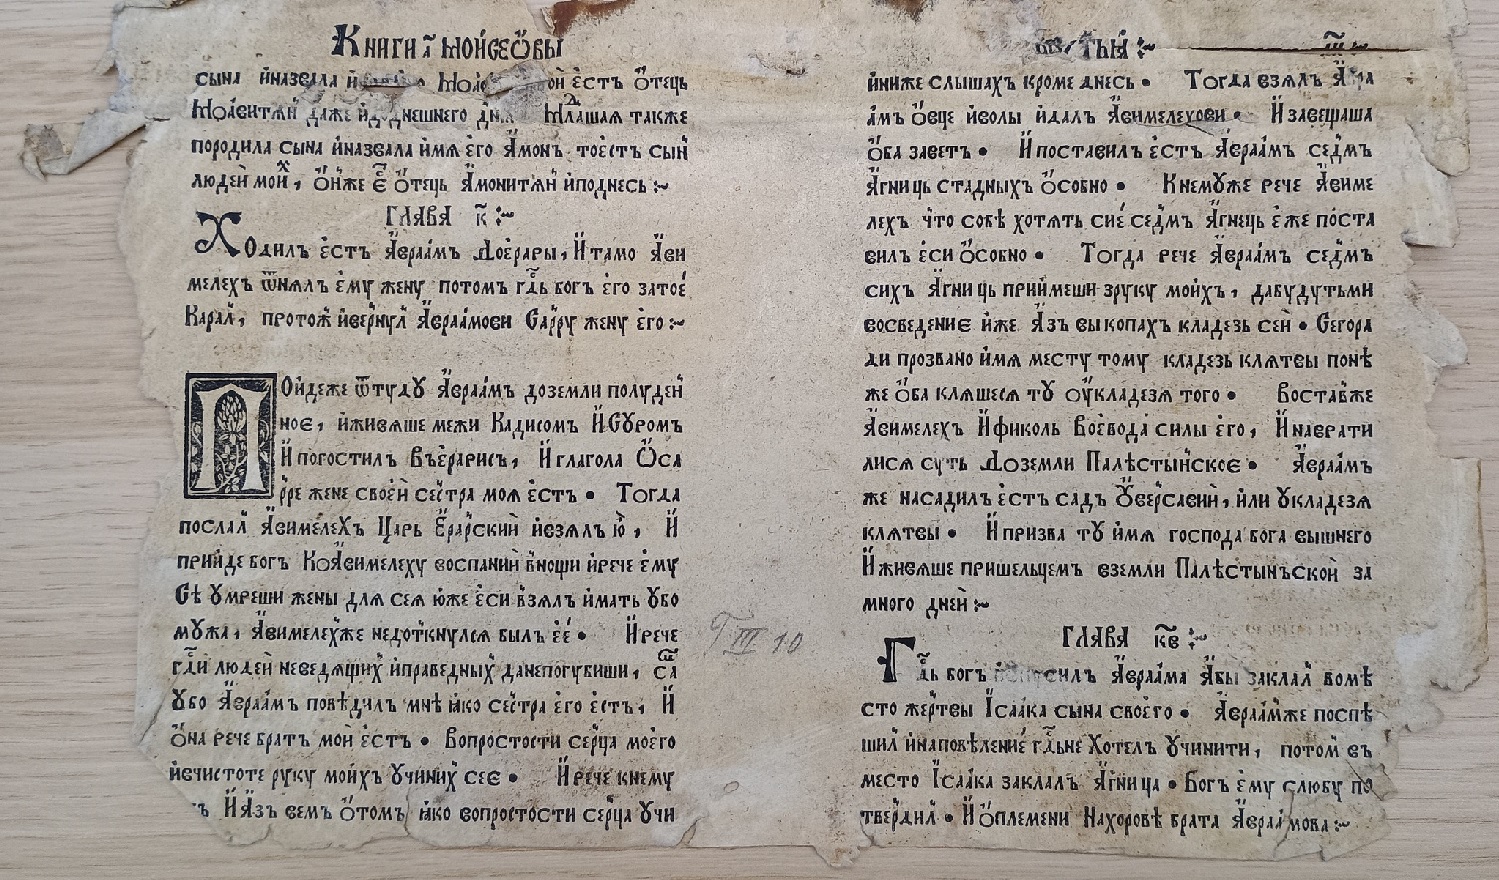 Книги а҃ моисеѡвы
сына иназвала Моа ои єстъ ѻтець
Моавитѧн даже идоднешнего дн Младшая также
породила сына иназвала имѧ єго Амон тоєсть сын
людеи мои, ѻнже є ѻтець Амонитѧн иподнесь
ГЛАВА к҃
Ходилъ єстъ Авраамъ Доєрары, И тамо Ави
мелехъ ѿнѧлъ єму жену потомъ гд҃ь богъ єго затоє
Карал, протож ивернул Авраамови Сарру жену єго
Поидеже ѿтуду Авраамъ доземли полуден
ноє, иживѧше межи Кадисомъ И Суромъ
И погостилъ Въєрарись, И глагола Ѡ Са
рре жене своєи сестра моѧ єстъ • Тогда
послал Авимелехъ Царь Єрарский ивзѧлъ ю, И
прииде богъ КоАвимелеху воспании внощи ирече єму
Се умреши жены длѧ сеѧ юже єси взѧлъ имать убо
мужа, Авимелехже недоткнулсѧ былъ еє • И рече
гд҃и людеи неведѧщих иправедных данепогубиши, са
убо Авраамъ поведилъ мнѣ ꙗко сестра єго єсть, И
ѻна рече братъ мои єстъ • Вопростости серца моєго
ивчистоте руку моихъ учиних сеє • И рече кнему
И Азъ вемъ ѻтомъ ꙗко вопростости серца учи
ТIII 10
ТЫА
иниже слышахъ кроме днесь • Тогда взѧлъ Авра
амъ ѻвце иволы идалъ Авимелехови • И завещаша
ѻба заветъ • И поставилъ єстъ Авраамъ седмъ
Агниць стадныхъ ѻсобно • Кнемуже рече Авиме
лехъ что собѣ хотѧть сиє седмъ Агнець єже поста
вилъ єси ѻсобно • Тогда рече Авраамъ седмъ
сихъ Агниць приимеши зруку моихъ, дабудутьми
восведениє иже Азъ выкопахъ кладезь сеи • Сегора
ди прозвано имѧ месту тому кладезь клѧтвы понѣ
же ѻба клѧшесѧ ту оукладезѧ того • Воставже
Авимелехъ И фиколь Воєвода силы єго, И наврати
лисѧ суть Доземли Палѣстынскоє • Авраамъ
же насадилъ єстъ садъ Увєрсавии, или укладезѧ
клѧтвы • И призва ту имѧ господа бога вышнего
И живѧше пришельцемъ вземли Палѣстынъскои за
много днеи
ГЛАВА кв҃
Гд҃ь богъ Авраама Абы заклал вомѣ
сто жертвы Ісаака сына своєго • Авраамже поспѣ
шил инаповѣлениє гд҃ьне Хотелъ учинити, потом въ
место Ісаака заклалъ Агница • Богъ єму слюбу по
твердил • И ѻплемени Нахоровѣ брата Авраамова